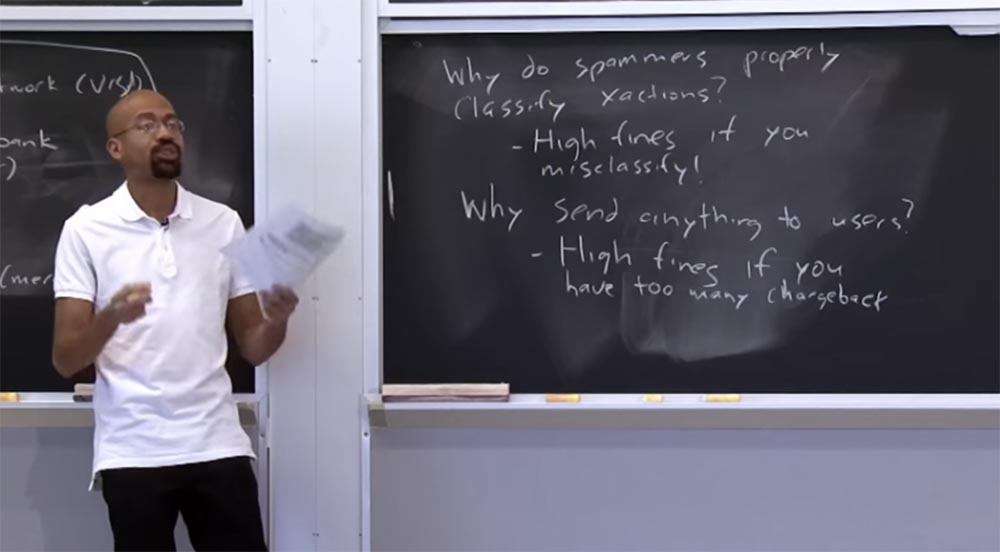 (Visa)
bank
Why do spammers properly
classify xactions?
- High fines if you
misclassify!
Why send anything to users?
- High fines if you
have too many chargeback